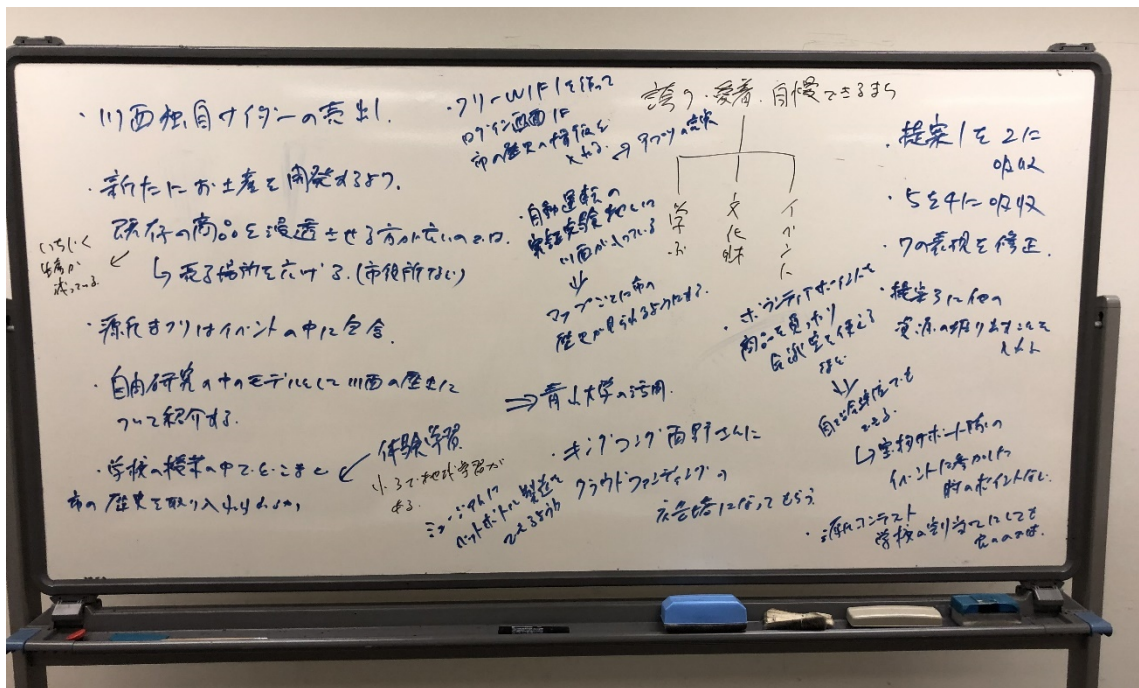 ・川西独自サイダーの売出し.
・新たにお土産を開発するより.
既存の商品を浸透させる方が広いのでは.
↳ 売る場所を広げる.(市役所など)
いちじく
生産が
減っている
・源氏まつりはイベントの中に包含.
・自由研究の中のモデルとして川西の歴史に
ついて紹介する.
・学校の授業の中でどこまで
市の歴史を取り入れ
体験学習
小3で地域学習が
ある.
ミュージアムに
ペットボトルに製造を
できるよう
・フリーWIFIを使って
ログイン画面は
市の歴史の情報を
入れる. → アプリの充実
・自動運転の
実証実験地として
川西が入っている
⇓
マップごとに市の
歴史が見られるようにする.
⇒ 青山大学の活用.
・キングコング西野さんに
クラウドファンディングの
広告塔になってもらう
誇り・愛着.自慢できるまち
学ぶ
文化財
イベント
・ボランティアポイントを
商品を買ったり
会議室を使える
など
⇓
自治会単位でも
できる.
↳ 宝物サポート隊の
イベントに参加した
時のポイントなど.
・源氏コンテスト
学校の割当てにしても
・提案1を2に
吸収
・5を4に吸収
・7の表現を修正.
・提案3に他の
資源の掘り出すことを
入れる